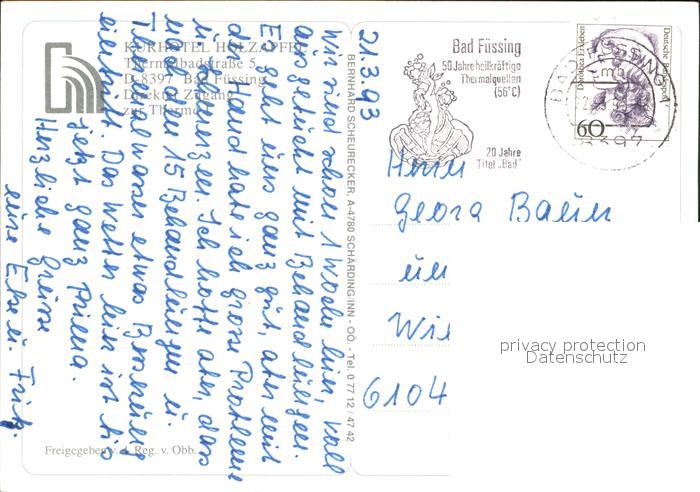 KURHOTEL HOLZAPFEL
Thermalbadstraße 5
D-8397 Bad Füssing
Direkter Zugang
zur Therme
21.3.93
Wir sind schon 1 Woche hier, voll
ausgebucht mit Behandlungen.
Es geht uns ganz gut, aber mit
der Hand habe ich grosse Probleme
u. Schmerzen. Ich hoffe aber, dass
nach den 15 Behandlungen u.
Thermalwasser etwas Besserung
eintritt. Das Wetter hier ist bis
jetzt ganz prima.
Herzliche Grüsse
eure Else u. Fritz.
BERNHARD SCHEURECKER, A-4780 SCHÄRDING/INN - OÖ. - Tel. 0 77 12 / 47 42
Freigegeben v. d. Reg. v. Obb.
Bad Füssing
50 Jahre heilkräftige
Thermalquellen
(56°C)
20 Jahre
Titel „Bad"
BAD FÜSSING
8397
Dorothea Erxleben
Deutsche Bundespost
60
Herrn
Georg Bauer
un
Wie
6104
privacy protection
Datenschutz